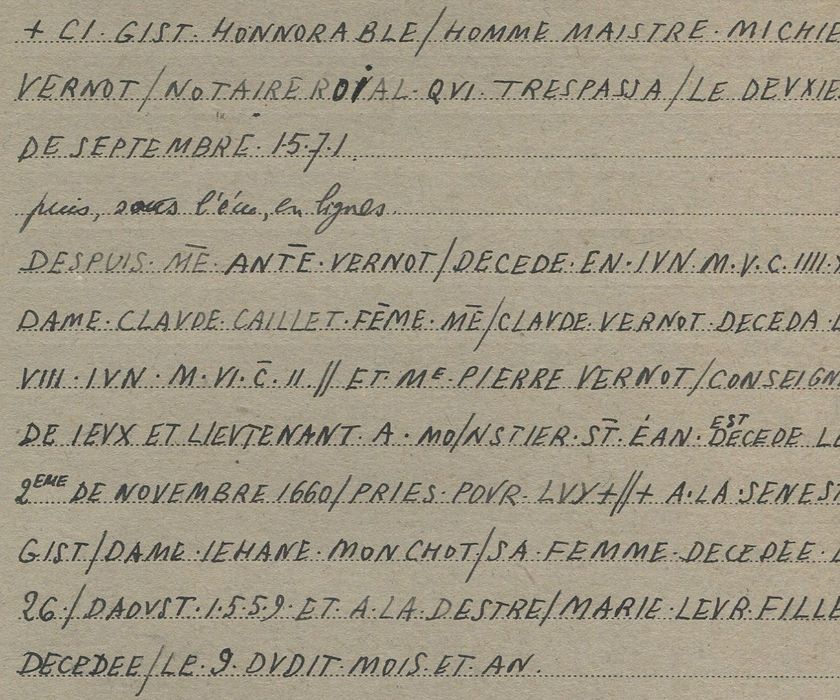 + CI · GIST · HONNORABLE/HOMME MAISTRE · MICHIE
VERNOT/NOTAIRE ROIAL · QVI · TRESPASSA/LE DEVXIE
DE SEPTEMBRE · 1·5·7·1.
puis, sous l'écu, en lignes
DESPUIS · MĒ · ANTĒ · VERNOT/DECEDE · EN · IVN · M · V · C · IIII · X
DAME · CLAVDE · CAILLET · FĒME · MĒ/CLAVDE · VERNOT · DECEDA · L
VIII · IVN · M · VI · C̄ · II // ET · Mᴱ · PIERRE VERNOT/CONSEIGN
DE IEVX ET LIEVTENANT · A · MO/NSTIER · ST̄ · ÉAN · EST DECEDE LE
2EME DE NOVEMBRE 1660/PRIES · POVR · LVY+//+ A · LA · SENEST
GIST/DAME · IEHANE · MONCHOT/SA · FEMME · DECEDEE · L
26 · /DAOVST · 1·5·5·9 · ET · A · LA · DESTRE/MARIE · LEVR · FILLE
DECEDEE/LE · 9 · DVDIT · MOIS · ET · AN ·